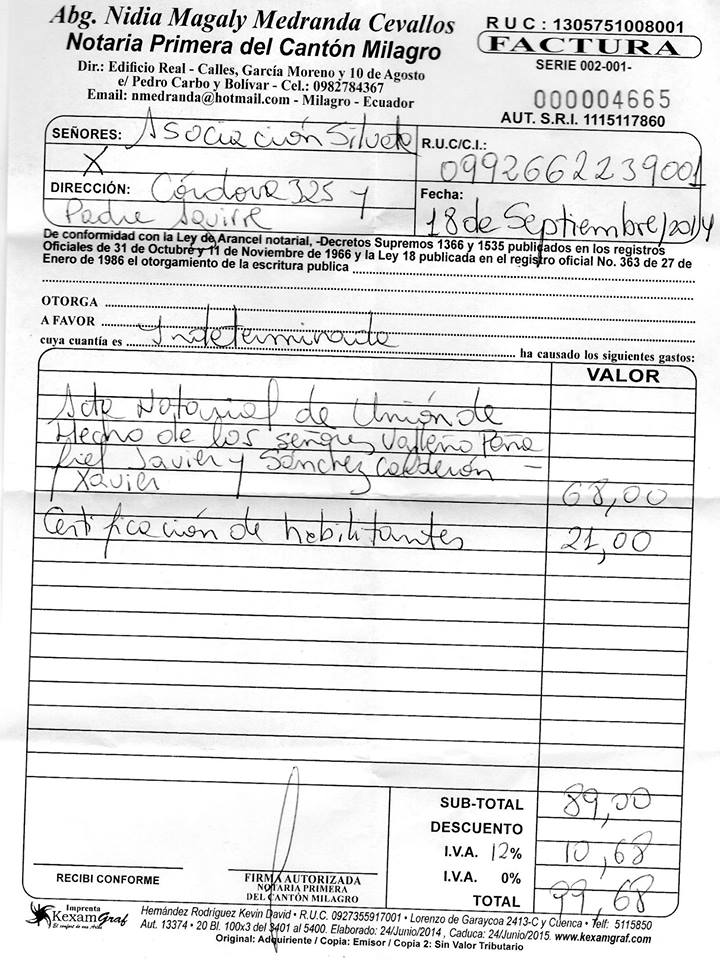 Abg. Nidia Magaly Medranda Cevallos
Notaria Primera del Cantón Milagro
Dir.: Edificio Real - Calles, García Moreno y 10 de Agosto
e/ Pedro Carbo y Bolívar - Cel.: 0982784367
Email: nmedranda@hotmail.com - Milagro - Ecuador
R U C : 1305751008001
FACTURA
SERIE 002-001-
000004665
AUT. S.R.I. 1115117860
SEÑORES: Asociación Silueta
X
R.U.C/C.I.:
0992662239001
DIRECCIÓN: Córdova 325 y
Padre Aguirre
Fecha:
18 de Septiembre/2014
De conformidad con la Ley de Arancel notarial, -Decretos Supremos 1366 y 1535 publicados en los registros
Oficiales de 31 de Octubre y 11 de Noviembre de 1966 y la Ley 18 publicada en el registro oficial No. 363 de 27 de
Enero de 1986 el otorgamiento de la escritura publica
OTORGA
A FAVOR
cuya cuantía es Indeterminada ha causado los siguientes gastos:
VALOR
Acta Notarial de Unión de
Hecho de los señores Valleño Peña
fiel Javier y Sánchez Calderón -
Xavier 68,00
Certificación de habilitantes 21,00
SUB-TOTAL 89,00
DESCUENTO
I.V.A. 12% 10,68
I.V.A. 0%
TOTAL 99,68
RECIBI CONFORME
FIRMA AUTORIZADA
NOTARIA PRIMERA
DEL CANTÓN MILAGRO
Imprenta
KexamGraf
Hernández Rodríguez Kevin David • R.U.C. 0927355917001 • Lorenzo de Garaycoa 2413-C y Cuenca • Telf: 5115850
Aut. 13374 • 20 Bl. 100x3 del 3401 al 5400. Elaborado: 24/Junio/2014 , Caduca: 24/Junio/2015. www.kexamgraf.com
Original: Adquiriente / Copia: Emisor / Copia 2: Sin Valor Tributario